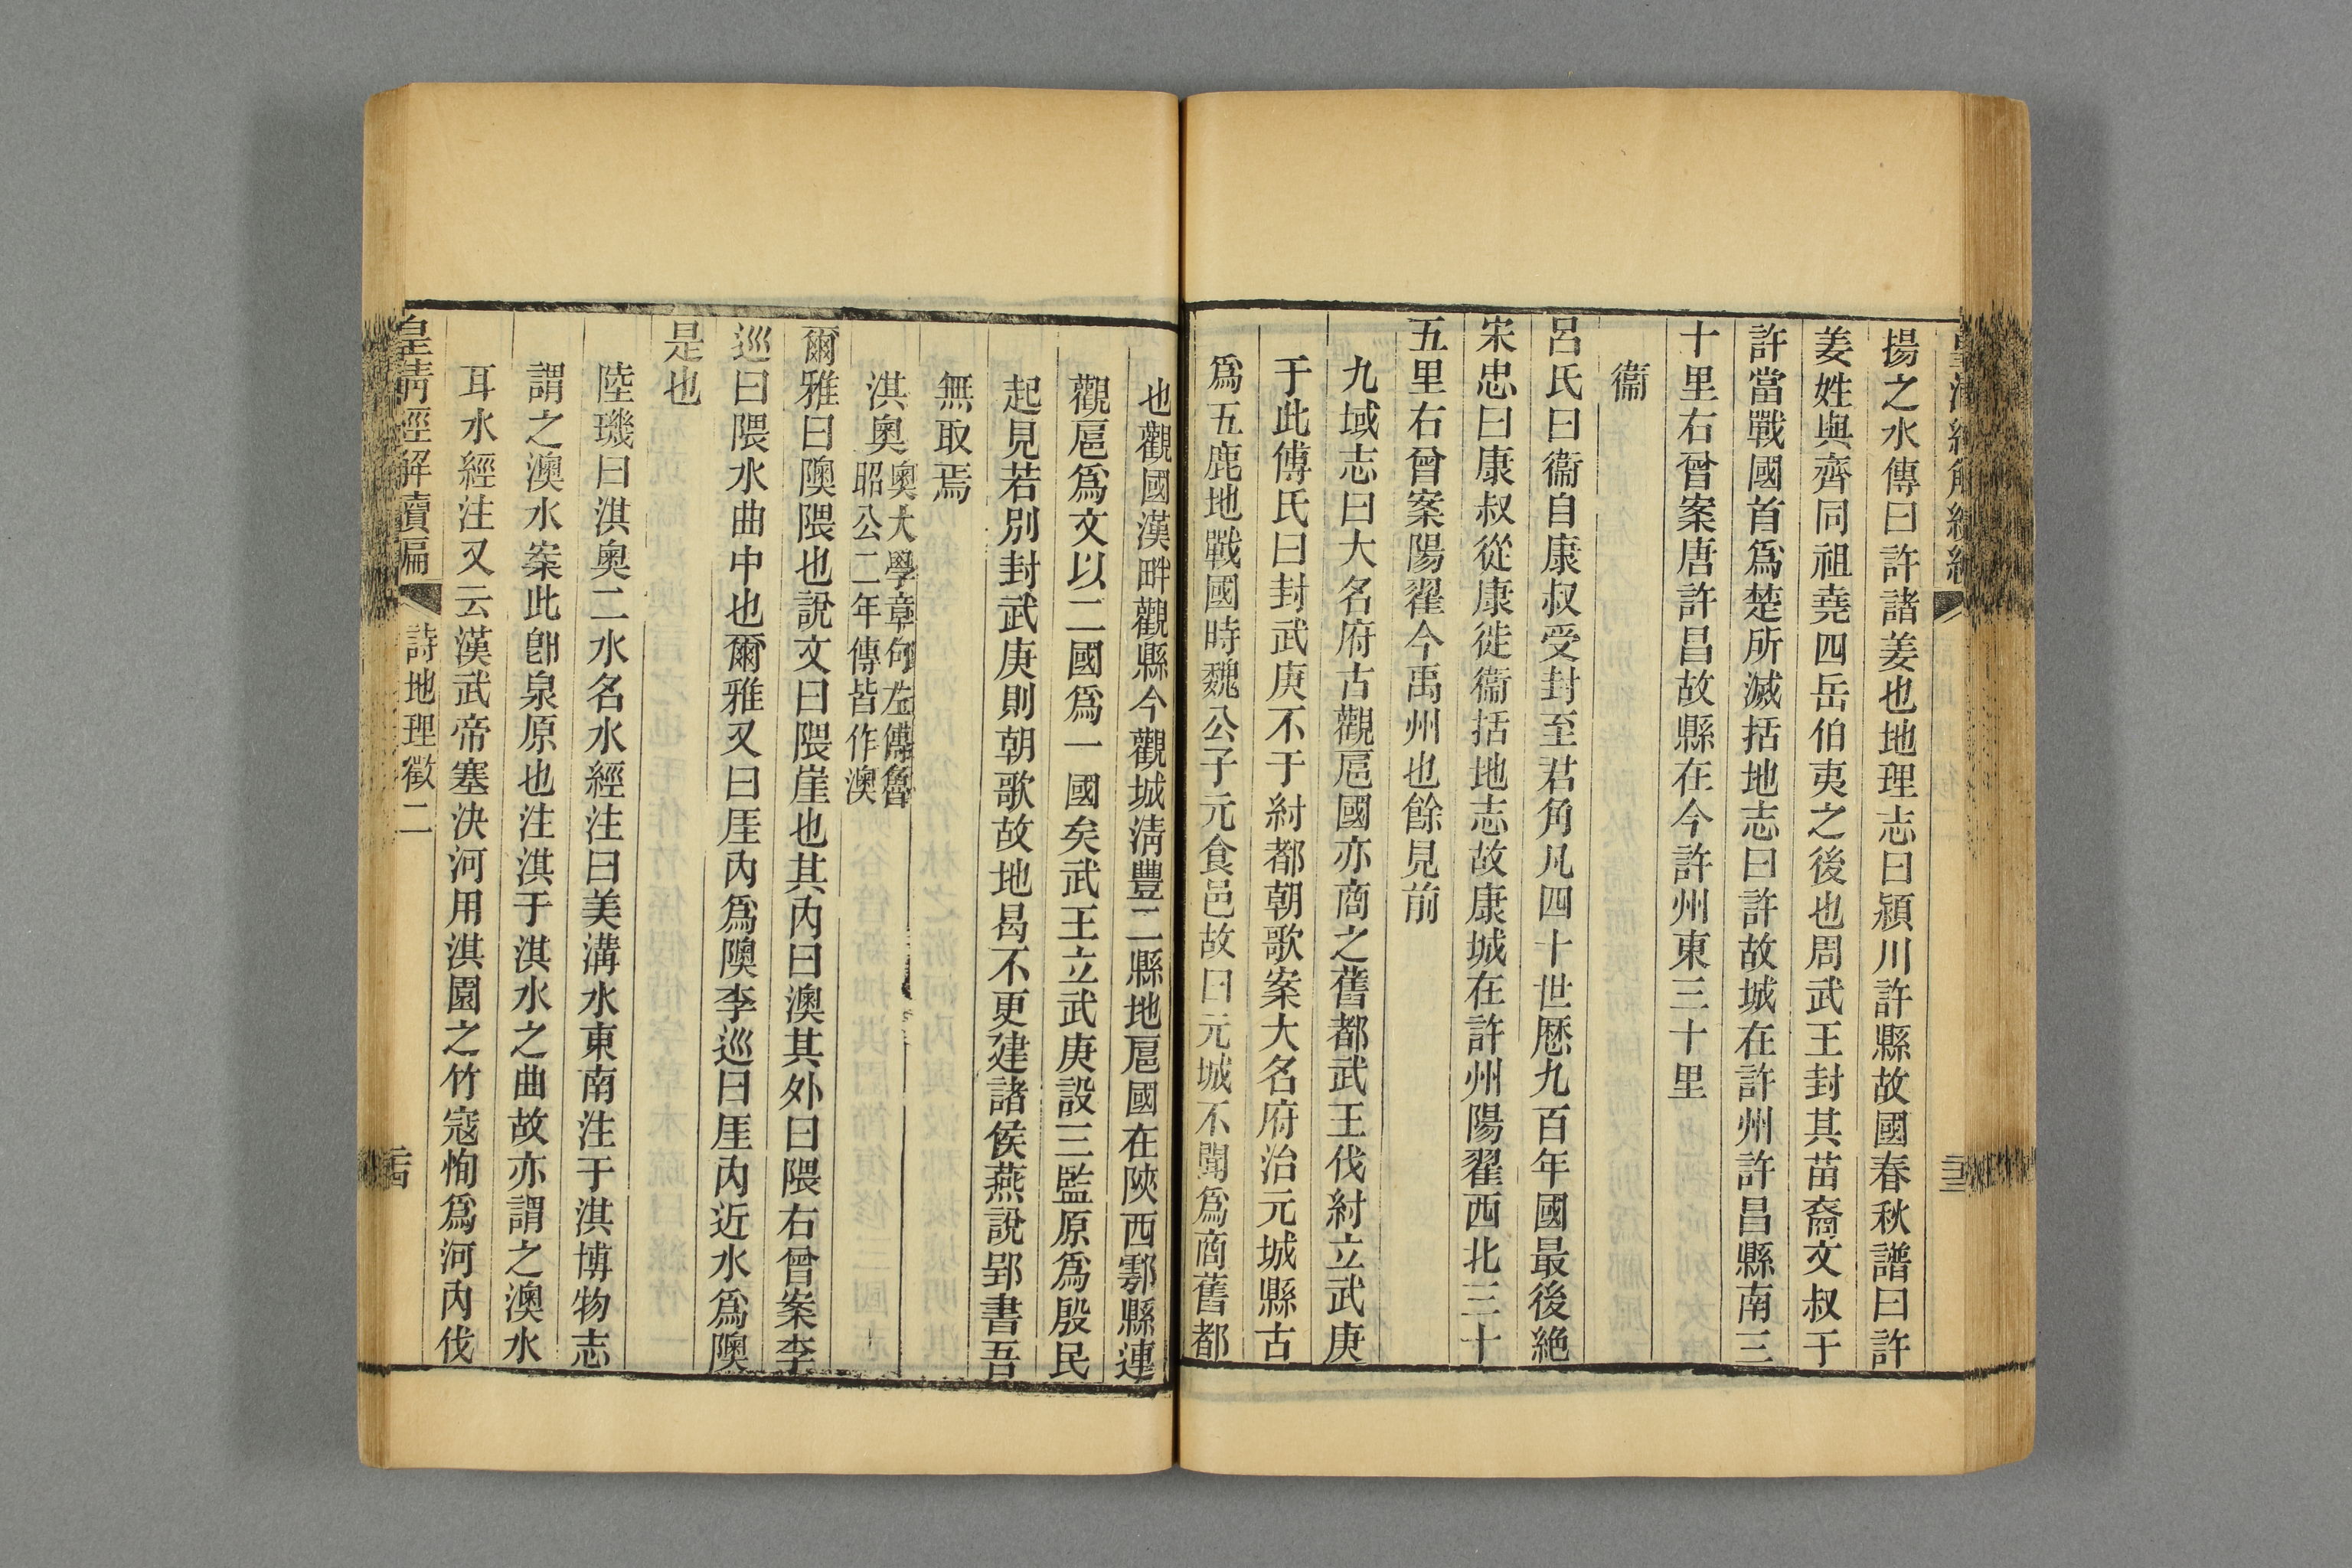 揚之水傳曰許諸姜也地理志曰潁川許縣故國春秋譜曰許
姜姓與齊同祖堯四岳伯夷之後也周武王封其苗裔文叔于
許當戰國首爲楚所滅括地志曰許故城在許州許昌縣南三
十里右曾案唐許昌故縣在今許州東三十里
衞
呂氏曰衞自康叔受封至君角凡四十世歷九百年國最後絶
宋忠曰康叔從康徙衞括地志故康城在許州陽翟西北三十
五里右曾案陽翟今禹州也餘見前
九域志曰大名府古觀扈國亦商之舊都武王伐紂立武庚
于此傅氏曰封武庚不于紂都朝歌案大名府治元城縣古
爲五鹿地戰國時魏公子元食邑故曰元城不聞爲商舊都
也觀國漢畔觀縣今觀城淸豐二縣地扈國在陝西鄠縣連
觀扈爲文以二國爲一國矣武王立武庚設三監原爲殷民
起見若別封武庚則朝歌故地曷不更建諸侯燕說郢書吾
無取焉
淇奧奧大學章句左傳魯
昭公二年傳皆作澳
爾雅曰隩隈也說文曰隈崖也其內曰澳其外曰隈右曾案李
巡曰隈水曲中也爾雅又曰厓內爲隩李巡曰厓內近水爲隩
是也
陸璣曰淇奧二水名水經注曰美溝水東南注于淇博物志
謂之澳水案此卽泉原也注淇于淇水之曲故亦謂之澳水
耳水經注又云漢武帝塞決河用淇園之竹寇恂爲河內伐
皇淸經解續編
詩地理徵二